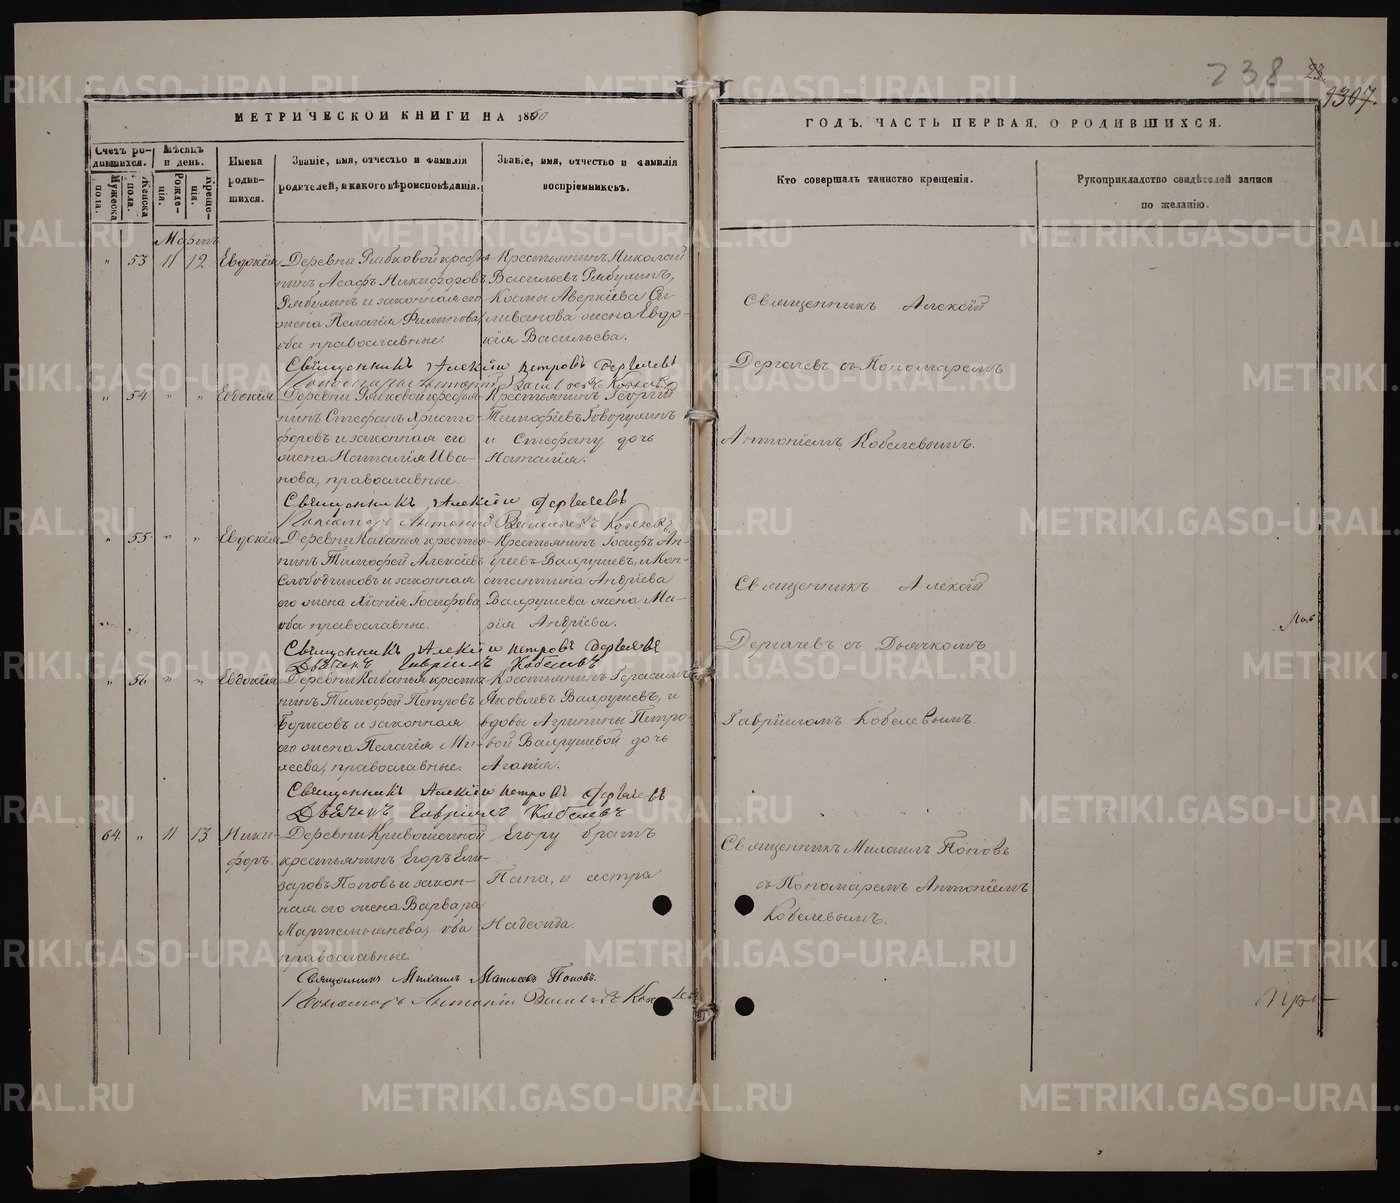 238
23
1307.
МЕТРИЧЕСКОЙ КНИГИ НА 1860
ГОДЪ, ЧАСТЬ ПЕРВАЯ, О РОДИВШИХСЯ.
Счетъ родившихся.
Мужеска пола.
Женска пола.
Мѣсяцъ и день.
Рожденія.
Крещенія.
Имена родившихся.
Званіе, имя, отчество и фамилія
родителей, и какого вѣроисповѣданія.
Званіе, имя, отчество и фамилія
воспріемниковъ.
Кто совершалъ таинство крещенія.
Рукоприкладство свидѣтелей записи
по желанію.
Мартъ
" 53 11 12 Евдокія
Деревни Рябковой кресть-
янинъ Асафъ Никифоровъ
Рябухинъ и законная его
жена Пелагія Филипова,
оба православные.
Крестьянинъ Николай
Васильевъ Рябухинъ,
Космы Аверкіева Си-
ливанова жена Евдо-
кія Васильева.
Священникъ Алексій
Дергачевъ съ Пономаремъ
Антоніемъ Кобелевымъ.
Священникъ Алексій Петровъ Дергачевъ
" 54 " " Евдокія
нинъ Стефанъ Христо-
форовъ и законная его
жена Наталія Ива-
нова, православные.
Крестьянинъ Георгій
Тимофіевъ Говорухинъ
и Стефану дочь
Наталія.
Священникъ Алексій Дергачевъ
Пономарь Антоній Васильевъ Кобелевъ
" 55 " " Евдокія
Деревни Кабанья кресть-
нинъ Тимофей Алексіевъ
Слободчиковъ и законная
его жена Хіонія Іосифова
оба православные.
Крестьянинъ Іосифъ Ан-
дреевъ Вахрушевъ, и Кон-
стантина Андріева
Вахрушева жена Ма-
рія Андріева.
Священникъ Алексій
Дергачевъ съ Дьячкомъ
Гавріиломъ Кобелевымъ.
Священникъ Алексій Петровъ Дергачевъ
Дьячекъ Гавріилъ Кобелевъ
" 56 " " Евдокія
Деревни Кабанья кресть-
нинъ Тимофей Петровъ
Борисовъ и законная
его жена Пелагія Ми-
хеева, православные.
Крестьянинъ Герасимъ
Яковлевъ Вахрушевъ, и
вдовы Агрипины Петро-
вой Вахрушевой дочь
Агапія.
Священникъ Алексій Петровъ Дергачевъ
Дьячекъ Гавріилъ Кобелевъ
64 " 11 13 Ники-
форъ.
крестьянинъ Егоръ Ели-
заровъ Поповъ и закон-
ная его жена Варвара
Мартемьянова, оба
православные.
Егору братъ
Папа, и сестра
Надежда.
Священникъ Михаилъ Поповъ
съ Пономаремъ Антоніемъ
Кобелевымъ.
Священникъ Михаилъ Матѳеевъ Поповъ.
Пономарь Антоній Васильевъ Кобелевъ
METRIKI.GASO-URAL.RU